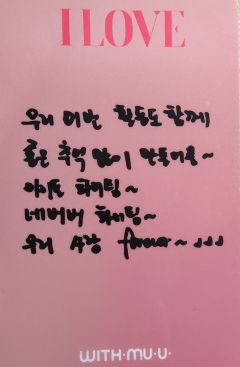 I LOVE
우리 이번 활동도 함께
좋은 추억 많이 만들어요~
아이들 화이팅~
네버버 화이팅~
우리 사랑 forever~
WITH·MU·U·